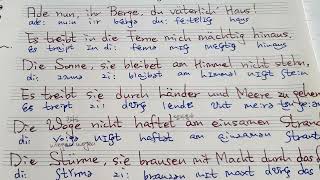 Ade nun, ihr Berge, du väterlich' Haus!
ade: nu:n i:r bɛrgə du: fɛ:tɛliç haʊs
Es treibt in die Ferne mich mächtig hinaus,
ɛs treipt in di: fɛrnə miç mɛçtiç hinaʊs
Die Sonne, sie bleibet am Himmel nicht stehn,
di: zɔnə zi: blaibət am himəl niçt ʃte:n
Es treibt sie durch Länder und Meere zu gehen
ɛs treipt zi: durç lɛndə ʊnt
Die Woge nicht haftet am einsamen Strand
di: vo:gə niçt haftət am ainzamən ʃtrant
Die Stürme, sie brausen mit Macht durch das
di: ʃtʏrmə zi: braʊzən mit maxt durç das